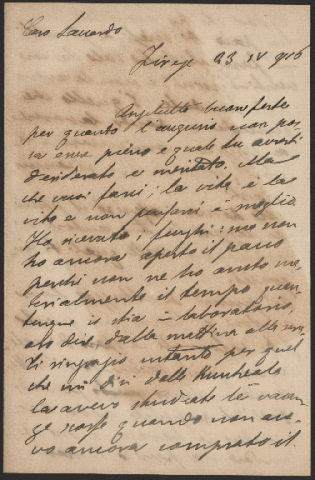 Caro Leonardo
Firenze 23 IV 916
Anzitutto buone feste
per quanto l'augurio non pos-
sa esser pieno e quale tu avresti
desiderato e meritato. Ma
che vuoi farci; la vita è la
vita e non pensarci è meglio
Ho ricevuto i funghi: ma non
ho ancora aperto il pacco
perchè non ne ho avuto ma-
terialmente il tempo quan-
tunque il stia in laboratorio,
sto dir, dalla mattina alla sera.
Ti ringrazio intanto per quel
che mi dici della
la avevo studiata le vacan-
ze scorse quando non ave-
vo ancora comprato il